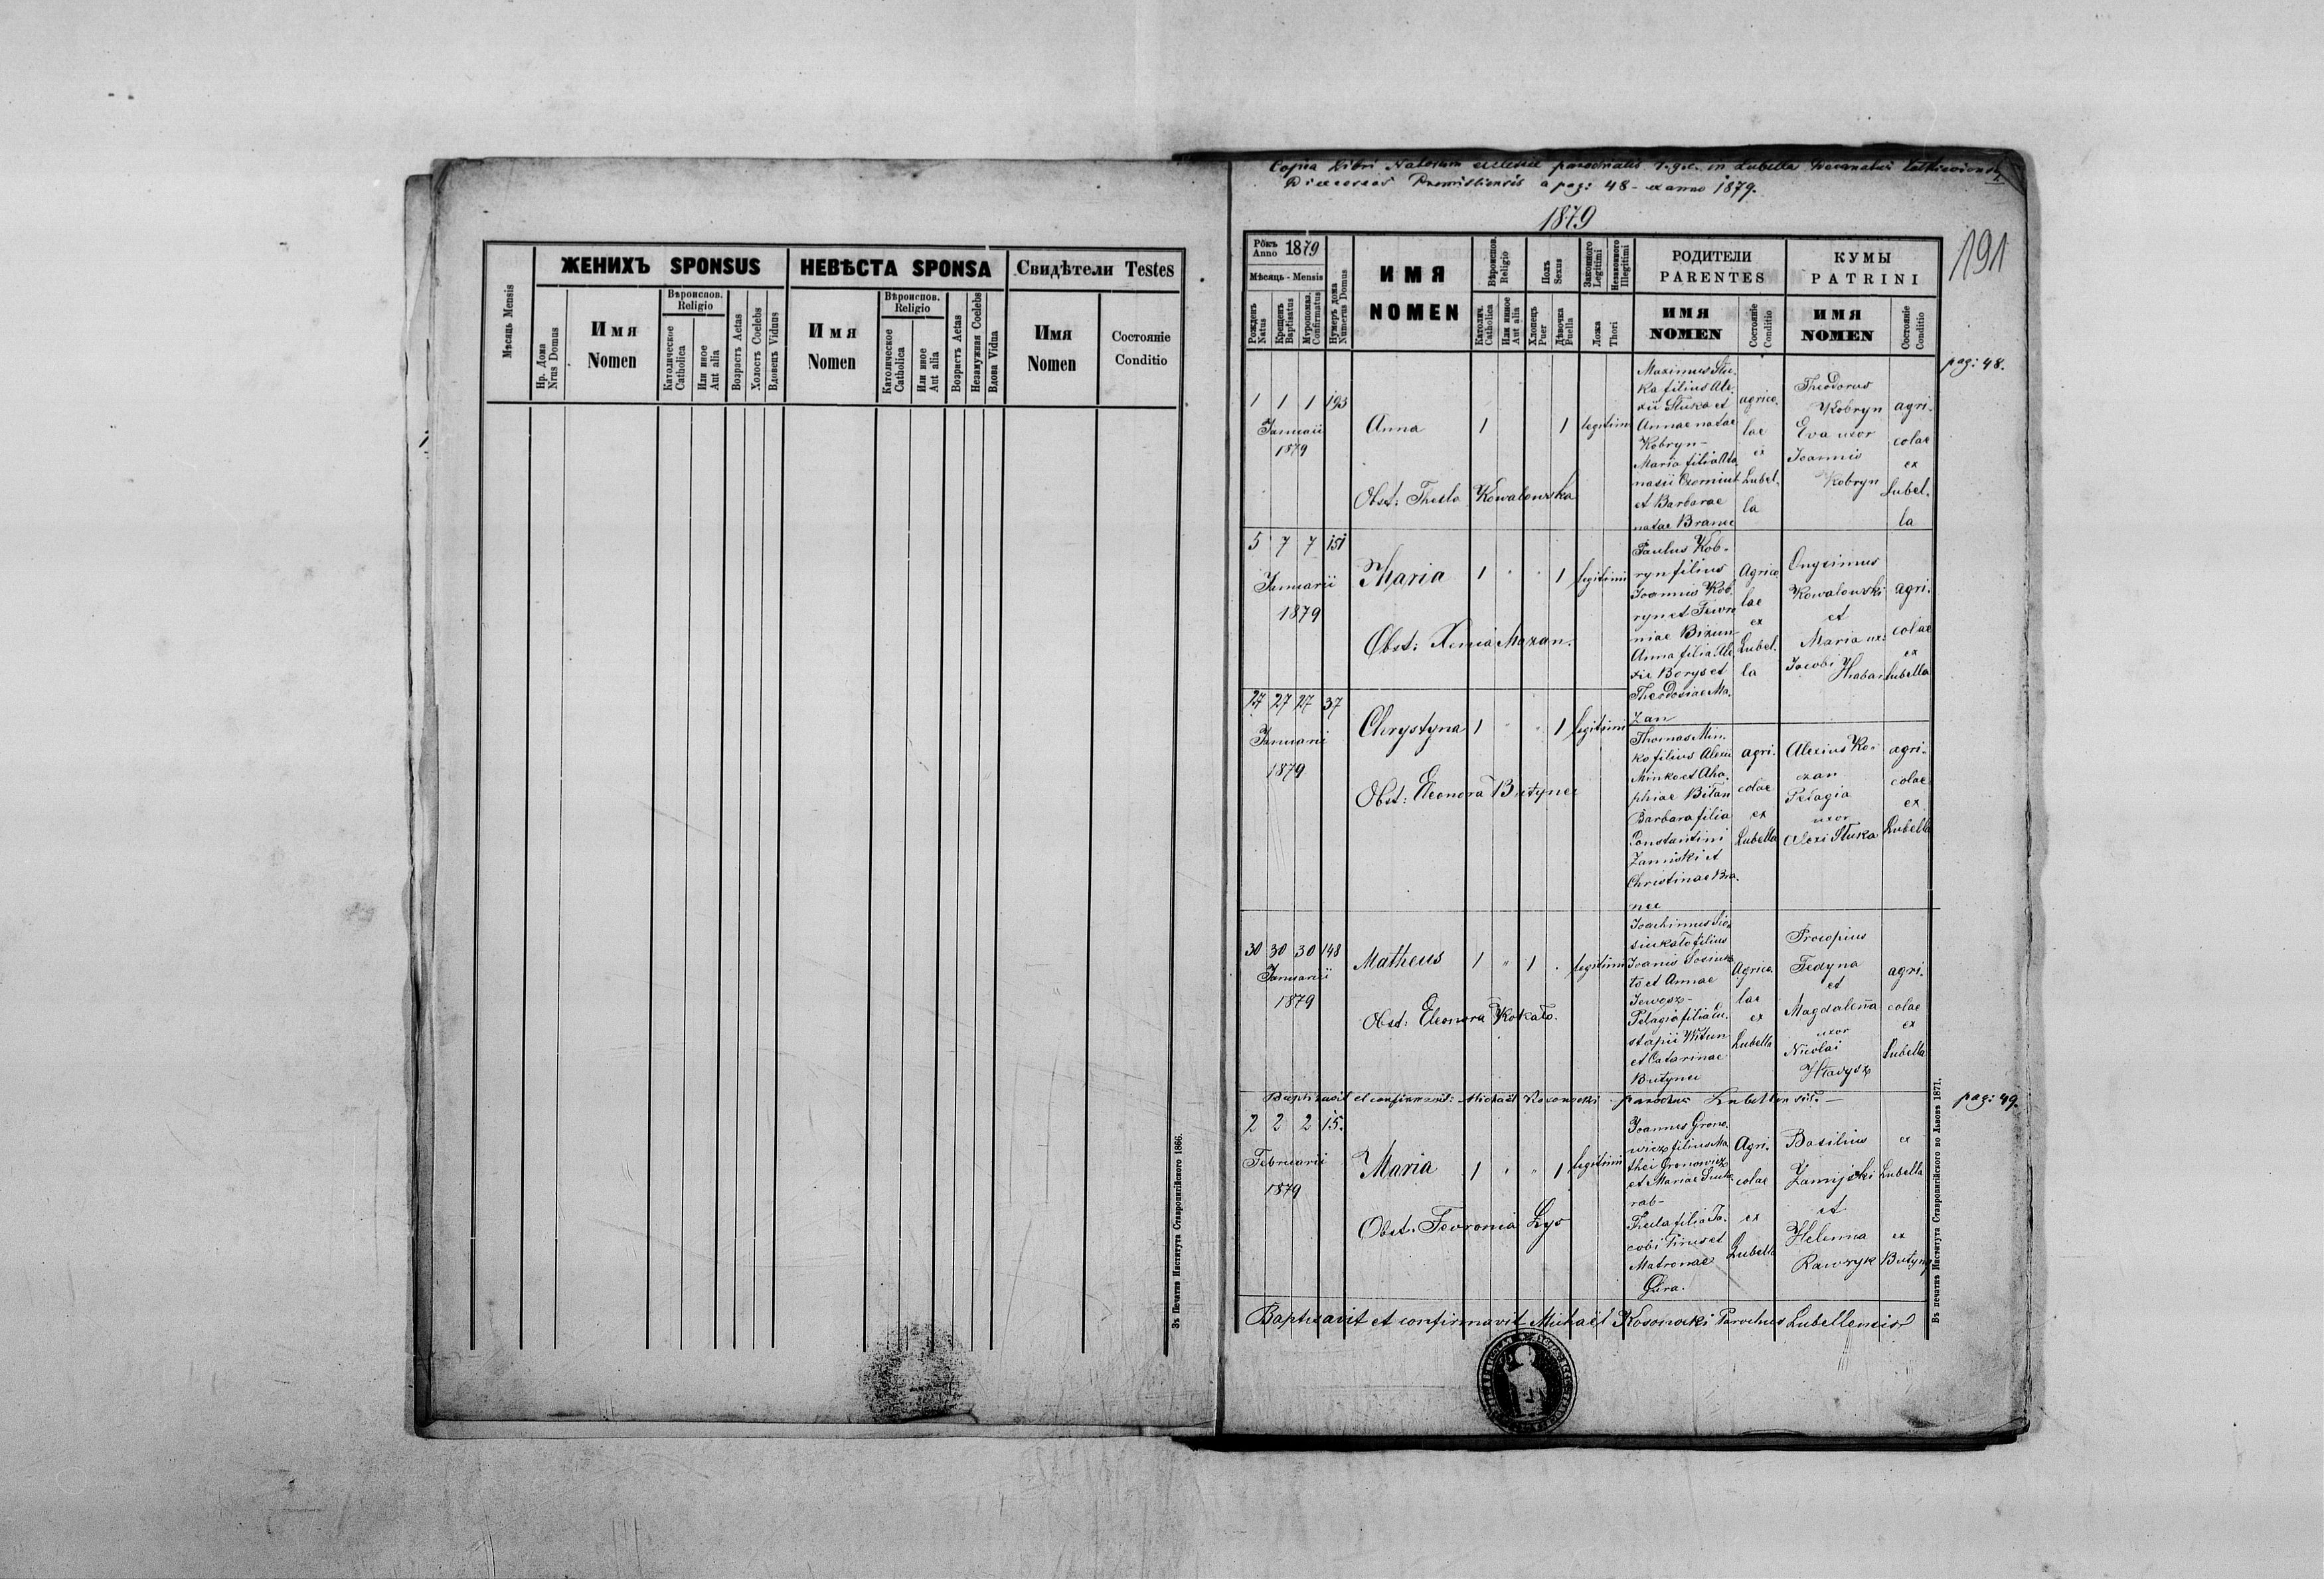 ЖЕНИХЪ SPONSUS
НЕВѢСТА SPONSA
Свидѣтели Testes
Мѣсяць Mensis
Нр. Дома
Nrus Domus
Имя
Nomen
Вѣроиспов.
Religio
Католическое
Catholica
Или иное
Aut alia
Возрастъ Aetas
Холостъ Coelebs
Вдовецъ Viduus
Имя
Nomen
Вѣроиспов.
Religio
Католическое
Catholica
Или иное
Aut alia
Возрастъ Aetas
Незамужная Coelebs
Вдова Vidua
Имя
Nomen
Состояніе
Conditio
Зъ Печатнѣ Института Ставропигійского 1866.
Copia Libri Natorum ecclesiae parochialis r. g. c. in Lubella Decanatus
a pag: 48 - ex anno 1879.
1879
191
Рôкъ
Anno 1879
Мѣсяць - Mensis
Рожденъ
Natus
Крещенъ
Baptisatus
Мvропомаз.
Confirmatus
Нумеръ дома
Numerus Domus
ИМЯ
NOMEN
Вѣроиспов.
Religio
Католич.
Catholica
Или инное
Aut alia
Полъ
Sexus
Хлопець
Puer
Дѣвочка
Puella
Законного
Legitimi
Незаконного
Illegitimi
Ложа
Thori
РОДИТЕЛИ
PARENTES
ИМЯ
NOMEN
Состояніе
Conditio
КУМЫ
PATRINI
ИМЯ
NOMEN
Состояніе
Conditio
pag: 48.
1 1 1 193
Januarii
1879
Anna
1 1 legitimi
Obst: Thecla Kowalowska
Maximus Stu-
ka filius Ale-
xii Stuka et
Annae natae
Kobryn -
Maria filia
nasii Czorniut
et Barbarae
natae Branec
agrico-
lae
ex
Lubel-
la
Theodorus
Kobryn
Eva uxor
Joannis
Kobryn
agri-
colae
ex
Lubel-
la
5 7 7 151
Januarii
1879
Maria
1 " " 1 legitimi
Obst: Xenia Mazan.
Paulus Kob-
ryn filius
Joannis Kob-
ryn et Fewro
niae Bizun
Anna filia Ale
xii Borys et
Theodosiae Ma-
zan
Agrico
lae
ex
Lubel-
la
Onysimus
Kowalowski
et
Maria ux:
Jacobi Hrabar
agri-
colae
ex
Lubella
27 27 27 37
Januarii
1879
Chrystyna
1 " " 1 legitimi
Obst: Eleonora Butynec
Thomas Min-
ko filius Alexii
Minko et Aha-
phiae Bilan
Barbara filia
Constantini
Zamiski et
Christinae Bra-
nec
agri-
colae
ex
Lubella
Alexius Ko-
czan
Pelagia
uxor
Alexi Stuka
agri-
colae
ex
Lubella
30 30 30 148
Januarii
1879
Matheus
1 " 1 . legitimi
Obst: Eleonora Kokało.
Joachimus
siukało filius
Joanis
to et Annae
Jewosz -
Pelagia filia Eu-
stapii Witun
et Catarinae
Butynec
Agrico-
lae
ex
Lubella
Procopius
Fedyna
et
Magdalena
uxor
Nicolai
Hładysz
agri-
colae
ex
Lubella
Baptizavit et confirmavit: Michaël Kosonocki parochus Lubellensis. -
pag: 49.
2 2 2 15.
Februarii
1879
Maria
1 " " 1 legitimi
Obst. Fevronia Łys
Joannes Grono-
wicz filius Ma
thei Gronowicz
et Mariae Sucho
rab -
Thecla filia Ja-
cobi Pirus et
Matronae
Gura.
Agri-
colae
ex
Lubella
Basilius
Zamijski
et
Helenna
Rawryk
ex
Lubella
ex
Butyny
Baptisavit et confirmavit Michaël Kosonocki Parochus Lubellensis
Въ печатнѣ Института Ставропигійского во Львовѣ 1871.